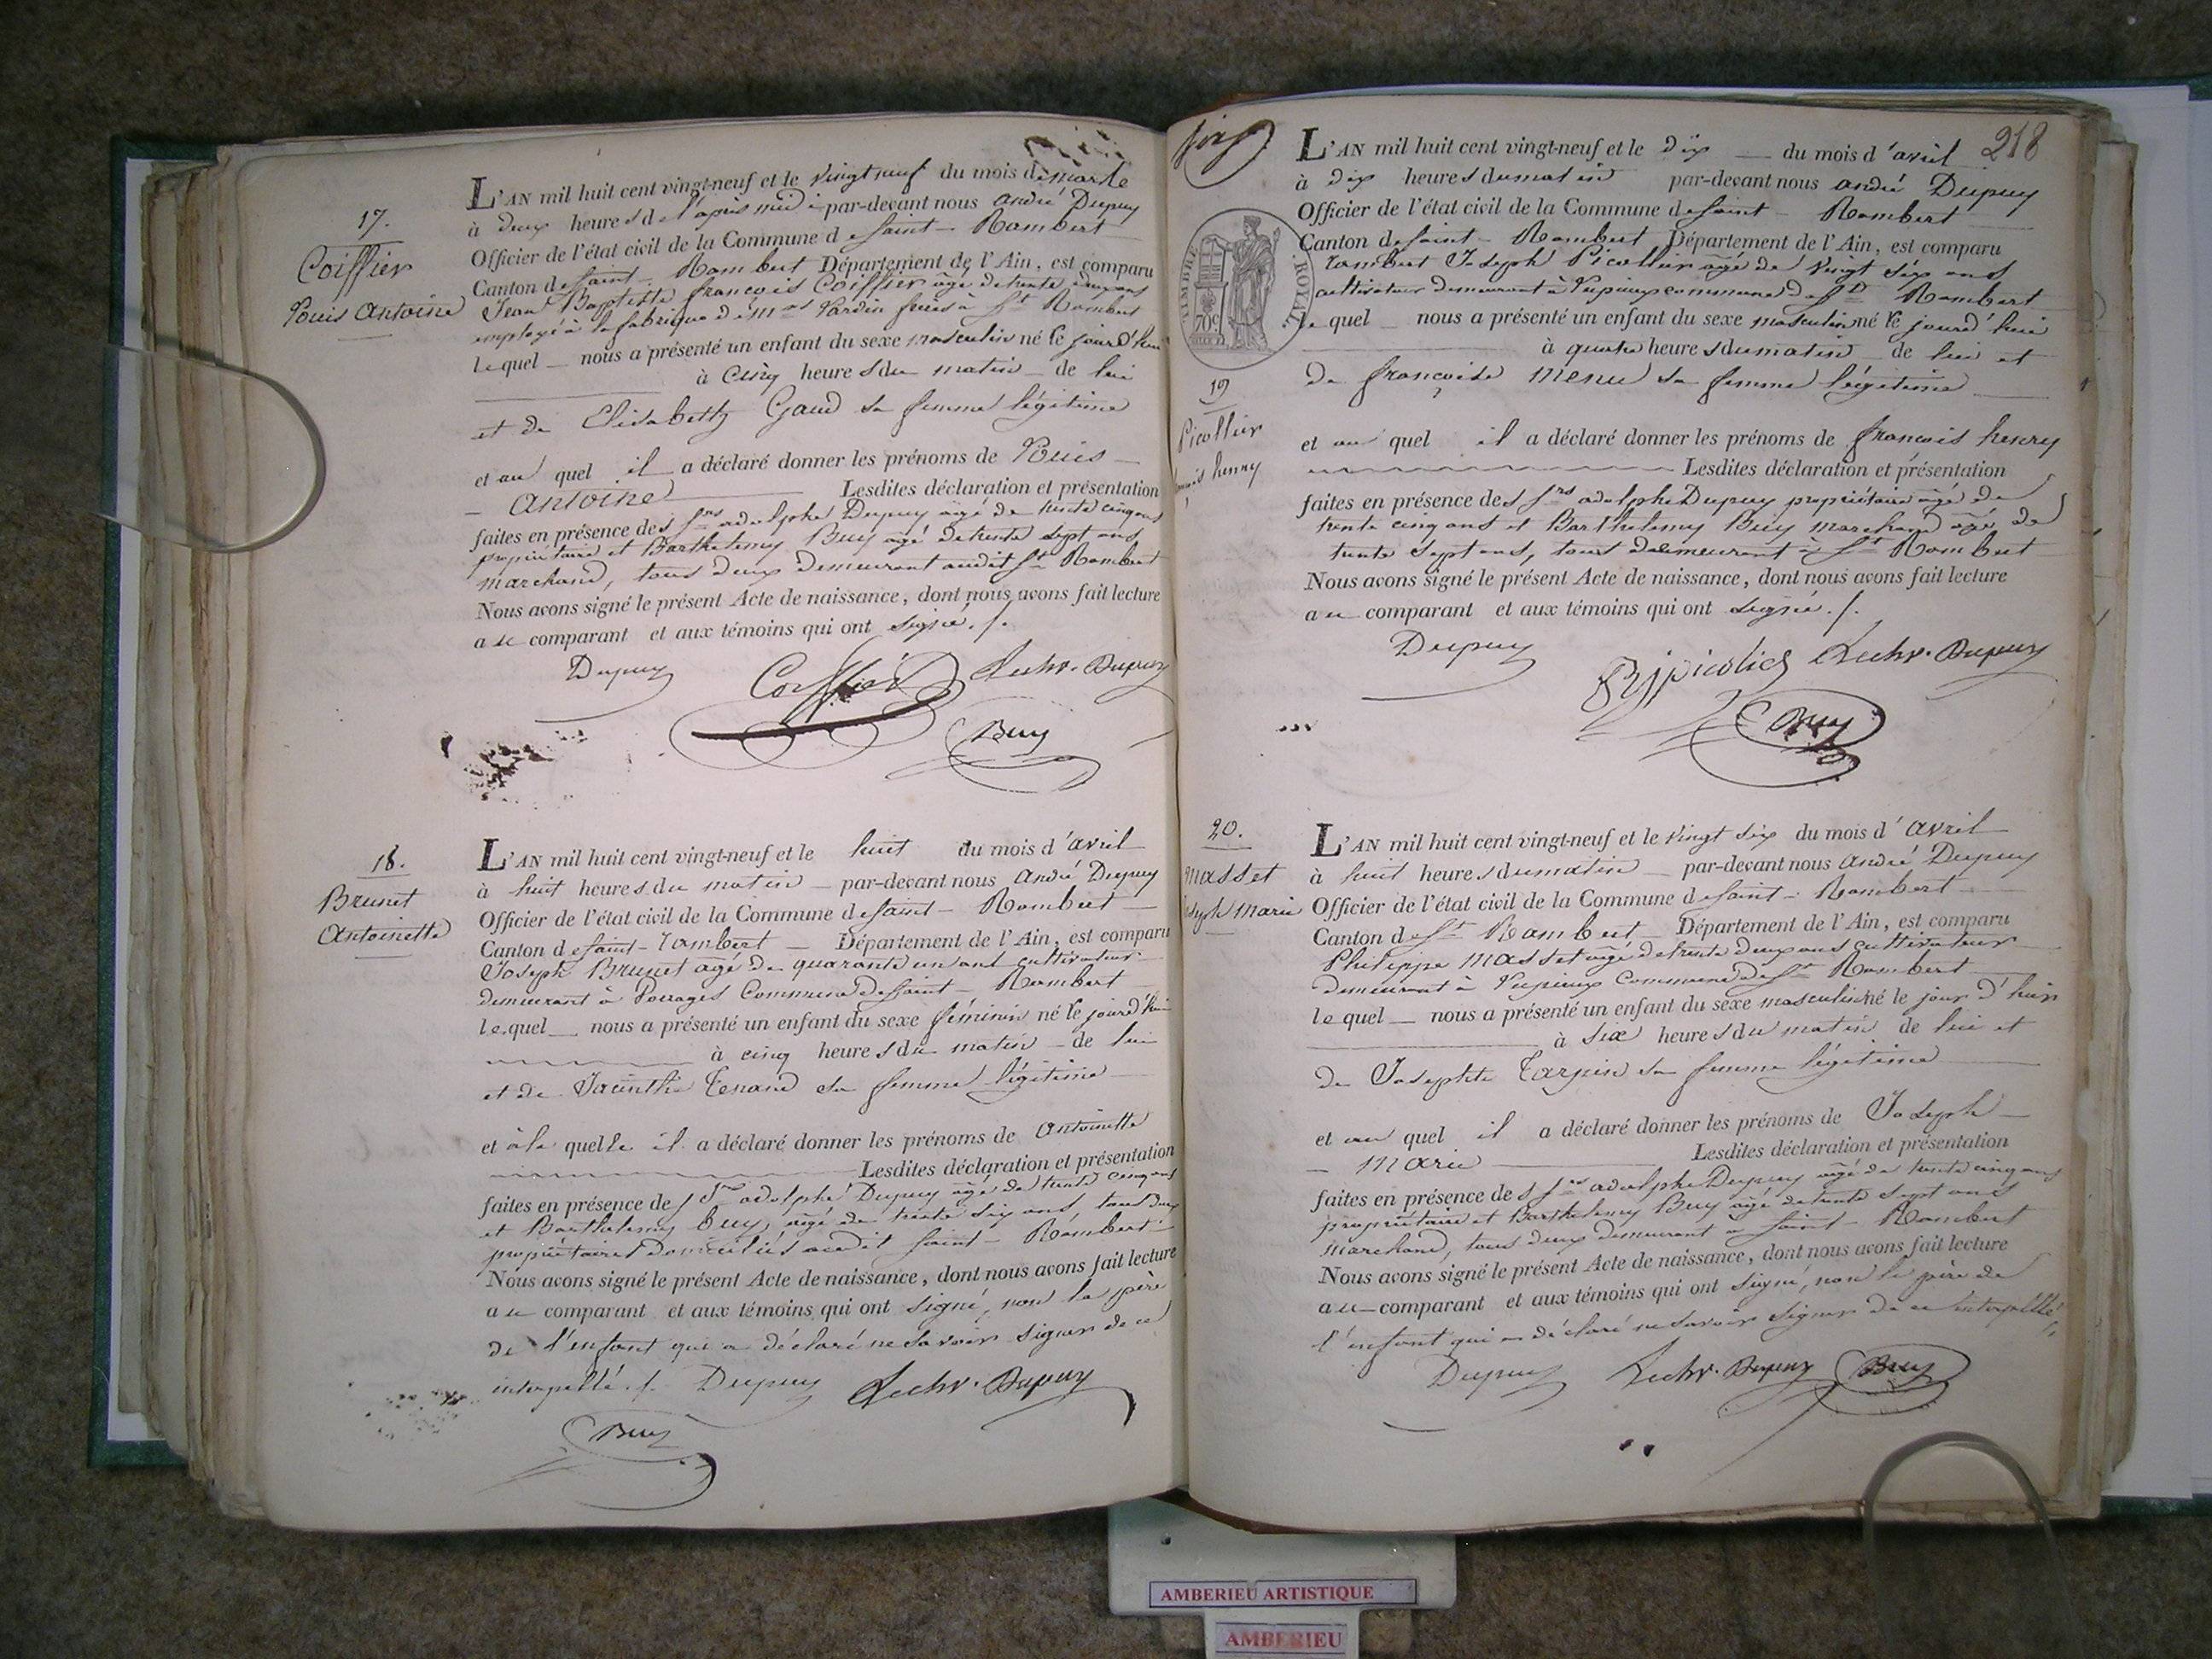 17.
Coiffier
Louis Antoine
L'AN mil huit cent vingt-neuf et le vingt neuf du mois de mars
à deux heures de l'après midi par-devant nous andré Dupuy
Officier de l'état civil de la Commune de saint-Rambert
Canton de saint-Rambert Département de l'Ain, est comparu
Jean Baptiste françois Coiffier âgé de trente ans
employé à la fabrique de Mrs frères à St Rambert
lequel nous a présenté un enfant du sexe masculin né le jourd'hui
à cinq heures du matin de lui
et de Elisabeth Gaud sa femme légitime
et au quel il a déclaré donner les prénoms de Louis
Antoine Lesdites déclaration et présentation
faites en présence des Srs adolphe Dupuy âgé de trente cinq ans
propriétaire et Barthelemy Buy âgé de trente sept ans
marchand, tous deux demeurant audit St Rambert
Nous avons signé le présent Acte de naissance, dont nous avons fait lecture
au comparant et aux témoins qui ont signé ./.
Dupuy Coiffier Dupuy
Buy
18.
Brunet
Antoinette
L'AN mil huit cent vingt-neuf et le huit du mois d'avril
à huit heures du matin par-devant nous André Dupuy
Officier de l'état civil de la Commune de saint-Rambert
Canton de saint-rambert Département de l'Ain, est comparu
Joseph Brunet âgé de quarante un ans cultivateur
demeurant à Commune de saint-Rambert
lequel nous a présenté un enfant du sexe féminin né le jourd'hui
à cinq heures du matin de lui
et de Jacinthe Tenand sa femme légitime
et à la quelle il a déclaré donner les prénoms de Antoinette
Lesdites déclaration et présentation
faites en présence des Srs adolphe Dupuy âgé de trente cinq ans
et Barthelemy Buy, âgé de trente six ans, tous deux
propriétaires domiciliés audit saint-Rambert
Nous avons signé le présent Acte de naissance, dont nous avons fait lecture
au comparant et aux témoins qui ont signé, non le père
de l'enfant qui a déclaré ne savoir signer de ce
interpellé ./. Dupuy Dupuy
Buy
218
TIMBRE ROYAL
70c
19
Picollier
henry
L'AN mil huit cent vingt-neuf et le dix du mois d'avril
à dix heures du matin par-devant nous andré Dupuy
Officier de l'état civil de la Commune de saint-Rambert
Canton de saint-Rambert Département de l'Ain, est comparu
rambert Joseph Picollier âgé de vingt six ans
cultivateur demeurant à Vupieux commune de St Rambert
le quel nous a présenté un enfant du sexe masculin né le jourd'hui
à quatre heures du matin de lui et
de françoise Menu sa femme légitime
et au quel il a déclaré donner les prénoms de françois henry
Lesdites déclaration et présentation
faites en présence des Srs adolphe Dupuy propriétaire âgé de
trente cinq ans et Barthelemy Buy marchand âgé de
trente sept ans, tous demeurant à St Rambert
Nous avons signé le présent Acte de naissance, dont nous avons fait lecture
au comparant et aux témoins qui ont signé ./.
Dupuy Dupuy
Buy
20.
Masset
Joseph Marie
L'AN mil huit cent vingt-neuf et le vingt six du mois d'avril
à huit heures du matin par-devant nous André Dupuy
Officier de l'état civil de la Commune de saint-Rambert
Canton de St Rambert Département de l'Ain, est comparu
Philippe Masset âgé de trente deux ans cultivateur
demeurant à Vupieux Commune de St Rambert
lequel nous a présenté un enfant du sexe masculin né le jour d'hui
à six heures du matin de lui et
de Josephte Tarpin sa femme légitime
et au quel il a déclaré donner les prénoms de Joseph
Marie Lesdites déclaration et présentation
faites en présence des Srs adolphe Dupuy âgé de trente cinq ans
propriétaire et Barthelemy Buy âgé de trente sept ans
marchand, tous deux demeurant à saint-Rambert
Nous avons signé le présent Acte de naissance, dont nous avons fait lecture
au comparant et aux témoins qui ont signé, non le père de
l'enfant qui a déclaré ne savoir signer de ce interpellé ./.
Dupuy Dupuy Buy
AMBERIEU ARTISTIQUE
AMBERIEU